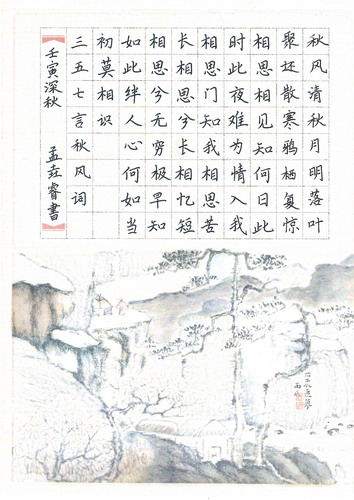 秋风清秋月明落叶
聚还散寒鸦栖复惊
相思相见知何日此
时此夜难为情入我
相思门知我相思苦
长相思兮长相忆短
相思兮无穷极早知
如此绊人心何如当
初莫相识
三五七言秋风词
壬寅深秋 孟垚睿書